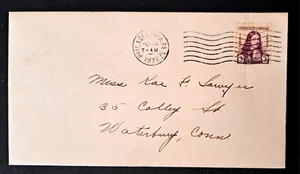 PHILADELPHIA, PA.
7-AM
1932
UNITED STATES POSTAGE
3
Miss Kae F. Sawyer
35 Colley St.
Waterbury, Conn